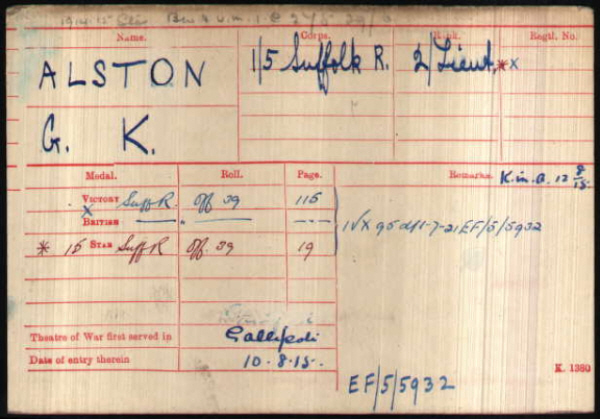 Name. Corps. Rank. Regtl. No.
ALSTON 1/5 Suffolk R. 2/Lieut. * X
G. K.
Medal. Roll. Page. Remarks. K. in A. 12 8/15.
VICTORY Suff R. Off 39 115
X
BRITISH — " — ---
1VX 95 d/1-7-21 EF/5/5932
* 15 STAR Suff R Off. 39 19
Theatre of War first served in Gallipoli
Date of entry therein 10-8-15.
K. 1380
EF/5/5932